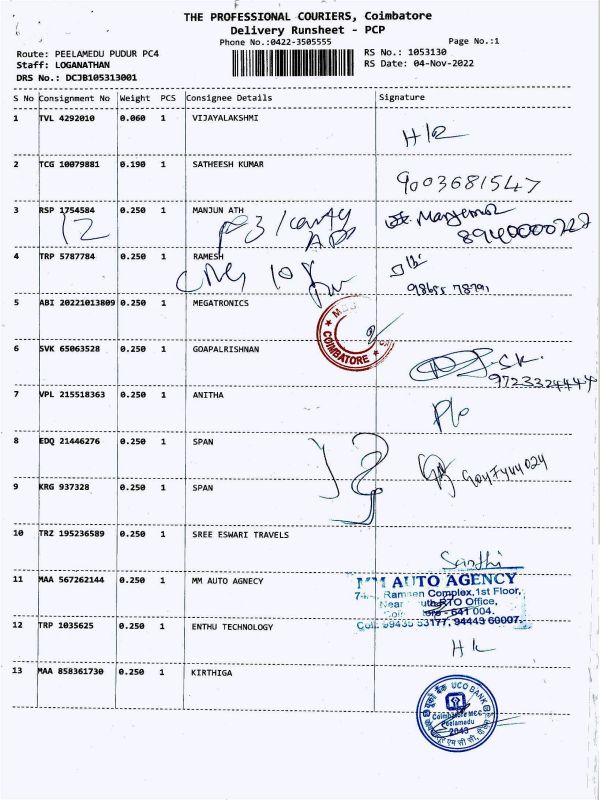 THE PROFESSIONAL COURIERS, Coimbatore
Delivery Runsheet - PCP
Phone No.:0422-3505555
Page No.:1
Route: PEELAMEDU PUDUR PC4
RS No.: 1053130
Staff: LOGANATHAN
RS Date: 04-Nov-2022
DRS No.: DCJB105313001
S No Consignment No Weight PCS Consignee Details Signature
1 TVL 4292010 0.060 1 VIJAYALAKSHMI
2 TCG 10079881 0.190 1 SATHEESH KUMAR
9003681547
3 RSP 1754584 0.250 1 MANJUN ATH
12
4 TRP 5787784 0.250 1 RAMESH
5 ABI 20221013809 0.250 1 MEGATRONICS
COIMBATORE
6 SVK 65063528 0.250 1 GOAPALRISHNAN
9723324444
7 VPL 215518363 0.250 1 ANITHA
8 EDQ 21446276 0.250 1 SPAN
9 KRG 937328 0.250 1 SPAN
10 TRZ 195236589 0.250 1 SREE ESWARI TRAVELS
Santhi
11 MAA 567262144 0.250 1 MM AUTO AGNECY
MM AUTO AGENCY
Ramsen Complex, 1st Floor,
Near RTO Office,
641 004.
94443 60007.
12 TRP 1035625 0.250 1 ENTHU TECHNOLOGY
13 MAA 858361730 0.250 1 KIRTHIGA
UCO BANK
Coimbatore MCC
Peelamedu
2043